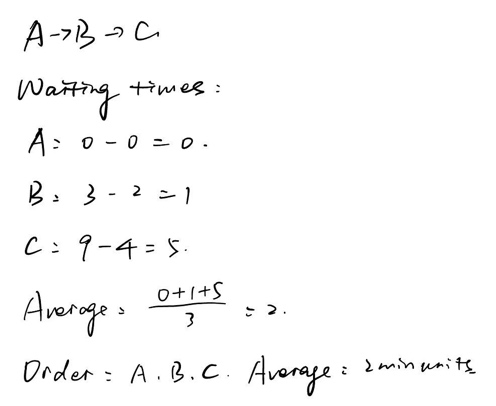 A→B→C
Waiting times:
A: 0 - 0 = 0.
B: 3 - 2 = 1
C: 9 - 4 = 5.
Average: (0+1+5)/3 = 2.
Order: A.B.C. Average: 2 min units